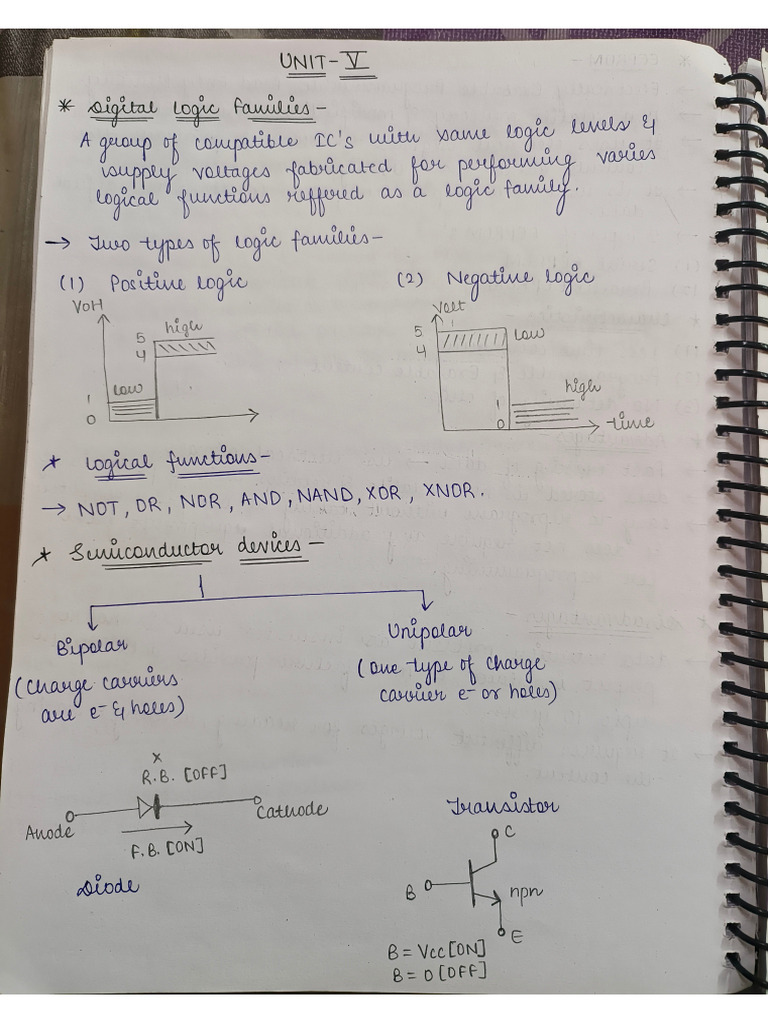 UNIT-V
* Digital Logic Families -
A group of compatible IC's with same logic levels &
supply voltages fabricated for performing varies
logical functions reffered as a logic family.
→ Two types of logic families-
(1) Positive logic
(2) Negative logic
VoH
5
4
high
low
1
0
Volt
5
4
low
high
1
0
time
* Logical functions-
→ NOT, OR, NOR, AND, NAND, XOR, XNOR.
* Semiconductor devices-
Bipolar
(charge carriers
are e- & holes)
Unipolar
(one type of charge
carrier e- or holes)
x
R.B. [OFF]
Anode
Cathode
F.B. [ON]
Diode
Transistor
C
B
npn
E
B = Vcc [ON]
B = 0 [OFF]